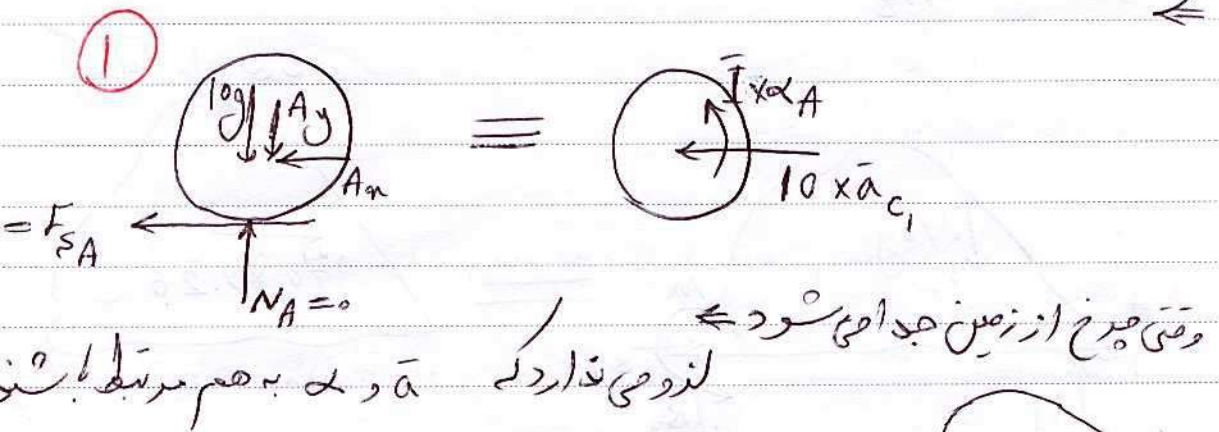 ⇐
1
10g A_y ≡ Ī×α_A
A_x 10×ā_c₁
=F_sA
N_A=0
وقتی چرخ از زمین جدا می شود ⇐
لزومی ندارد که ā و α به هم مرتبط باشند